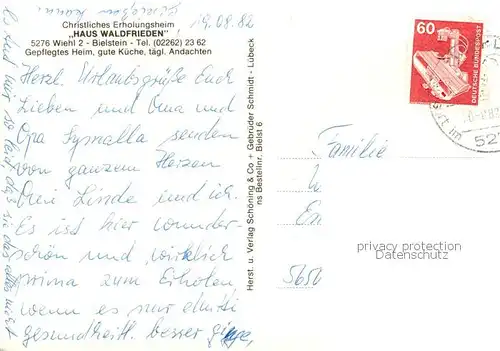 Christliches Erholungsheim
„HAUS WALDFRIEDEN"
5276 Wiehl 2 - Bielstein - Tel. (02262) 23 62
Gepflegtes Heim, gute Küche, tägl. Andachten
19.08.82
Herzl. Urlaubsgrüße Euch
Lieben und Oma und
Opa senden
von ganzem Herzen
Linde und ich.
Es ist hier wunder-
schön und wirklich
prima zum Erholen,
wenn es nur
gesundheitl. besser ginge,
es tut uns so leid, daß sie das alles
Herst. u. Verlag Schöning & Co + Gebrüder Schmidt - Lübeck
ns Bestellnr. Bielst 6
60
DEUTSCHE BUNDESPOST
52
Familie
5650
privacy protection
Datenschutz